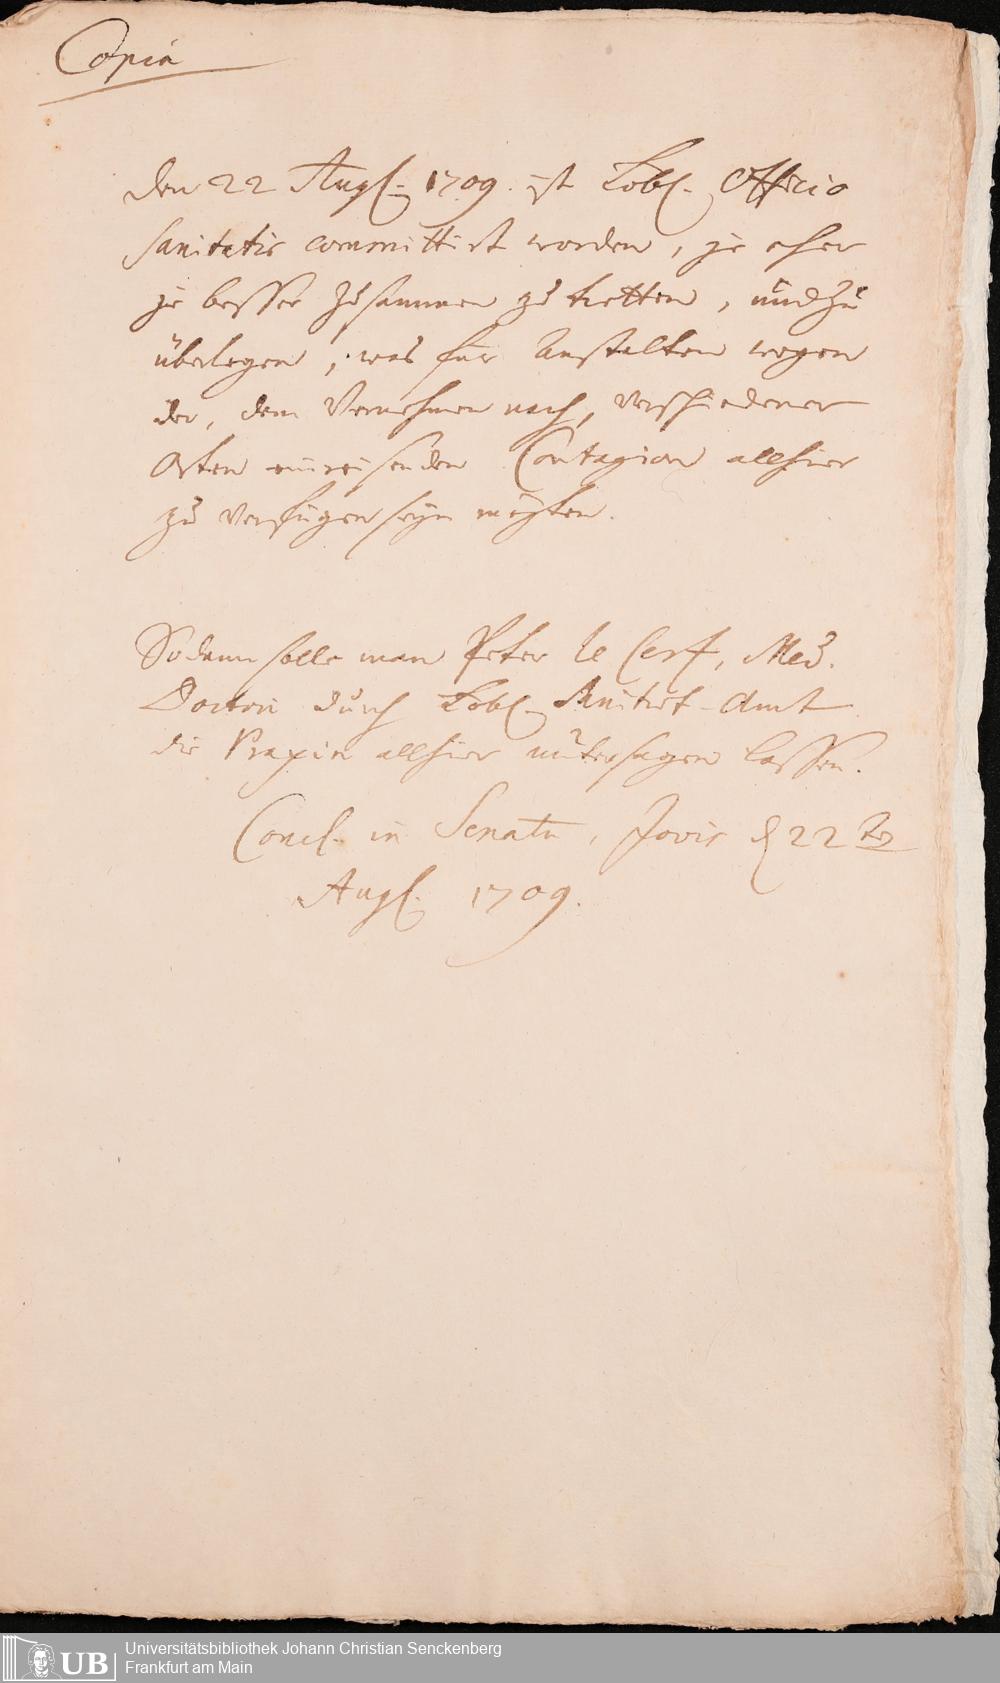 Copia
Den 22 Augs. 1709. ist Löbl. Officio
Sanitatis committirt worden, je eher
je besser zusammen zu tretten, und zu
überlegen, was für Anstalten wegen
der, dem Vernehmen nach, verschiedener
Orten einreisenden Contagion allhier
zu verfügen seyn mögten.
Sodann solle man Peter le Cerf, Med.
Doctori durch Löbl. Sanitet-Amt
die Praxin allhier untersagen lassen.
Concl. in Senatu, Jovis d 22
Augs. 1709.
UB
Universitätsbibliothek Johann Christian Senckenberg
Frankfurt am Main